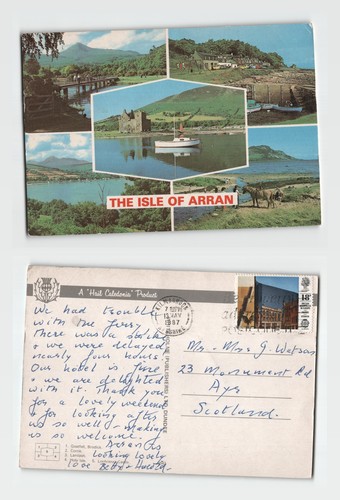 THE ISLE OF ARRAN
A "Hail Caledonia" Product
We had trouble
with the ferry
there was a strike
& we were delayed
nearly four hours
Our hotel is fine
& we are delighted
with it. Thank you
for a lovely weekend
& for looking after
us so well - making
us so welcome.
Arran is
looking lovely
love Betty & Harold
MAY
1987
18
Mr. Mrs G. Watson
23 Monument Rd
Ayr
Scotland.